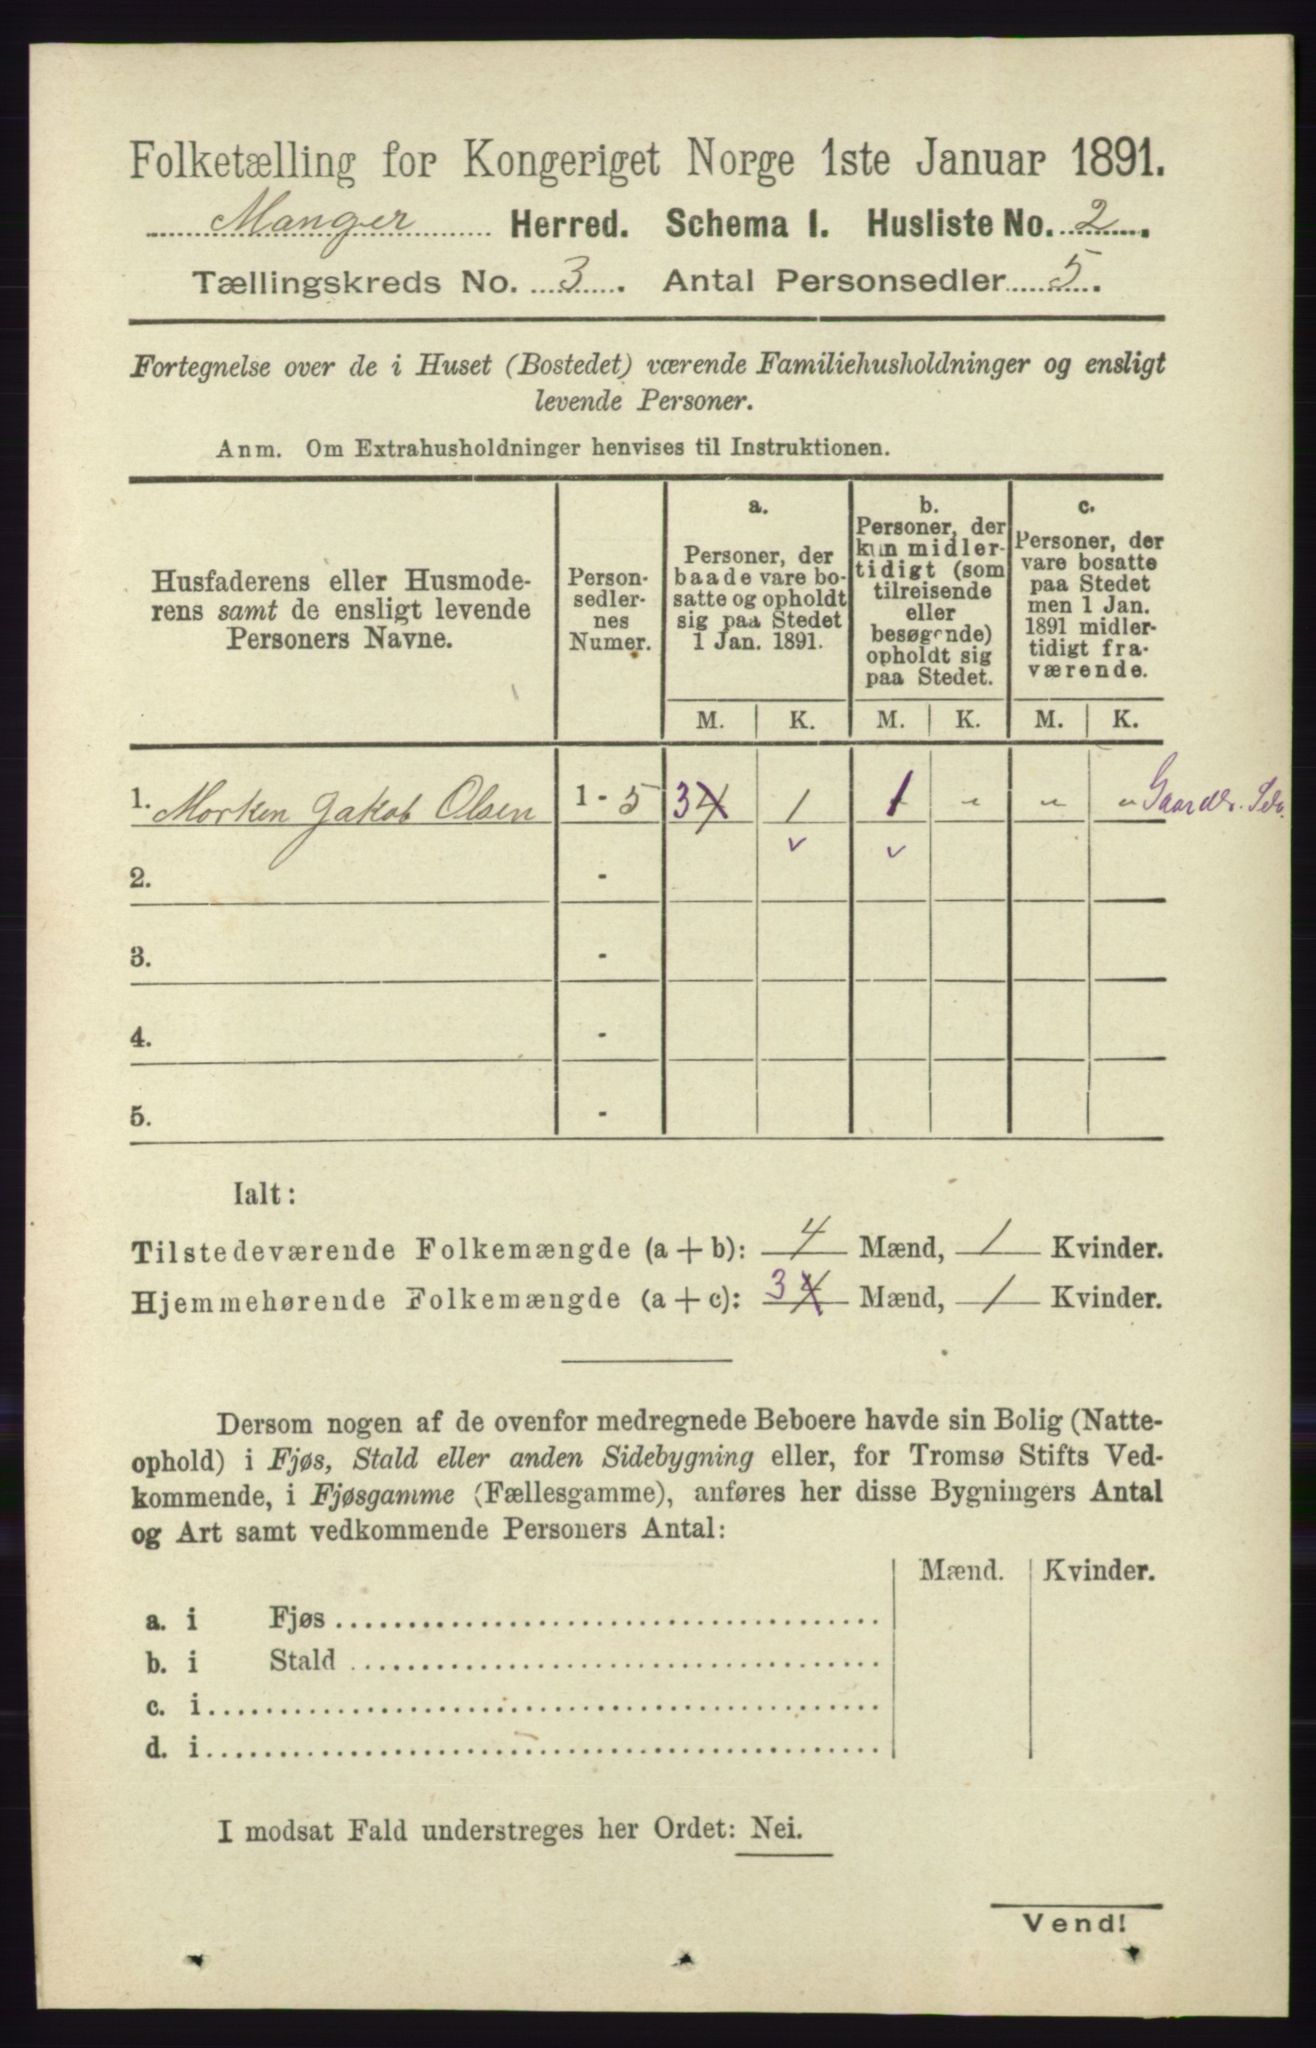 Folketælling for Kongeriget Norge 1ste Januar 1891.
Manger Herred. Schema I. Husliste No. 2.
Tællingskreds No. 3. Antal Personsedler 5.
Fortegnelse over de i Huset (Bostedet) værende Familiehusholdninger og ensligt
levende Personer.
Anm. Om Extrahusholdninger henvises til Instruktionen.
Husfaderens eller Husmode-
rens samt de ensligt levende
Personers Navne.
Person-
sedler-
nes
Numer.
a.
Personer, der
baade vare bo-
satte og opholdt
sig paa Stedet
1 Jan. 1891.
b.
Personer, der
kun midler-
tidigt (som
tilreisende
eller
besøgende)
opholdt sig
paa Stedet.
c.
Personer, der
vare bosatte
paa Stedet
men 1 Jan.
1891 midler-
tidigt fra-
værende.
M. K. M. K. M. K.
1. Morken Jakob Olsen 1 - 5 3 4 1 1 " " " Gaardbr. Selv.
2. -
3. -
4. -
5. -
Ialt:
Tilstedeværende Folkemængde (a + b): 4 Mænd, 1 Kvinder.
Hjemmehørende Folkemængde (a + c): 3 4 Mænd, 1 Kvinder.
Dersom nogen af de ovenfor medregnede Beboere havde sin Bolig (Natte-
ophold) i Fjøs, Stald eller anden Sidebygning eller, for Tromsø Stifts Ved-
kommende, i Fjøsgamme (Fællesgamme), anføres her disse Bygningers Antal
og Art samt vedkommende Personers Antal:
Mænd. Kvinder.
a. i Fjøs
b. i Stald
c. i
d. i
I modsat Fald understreges her Ordet: Nei.
Vend!